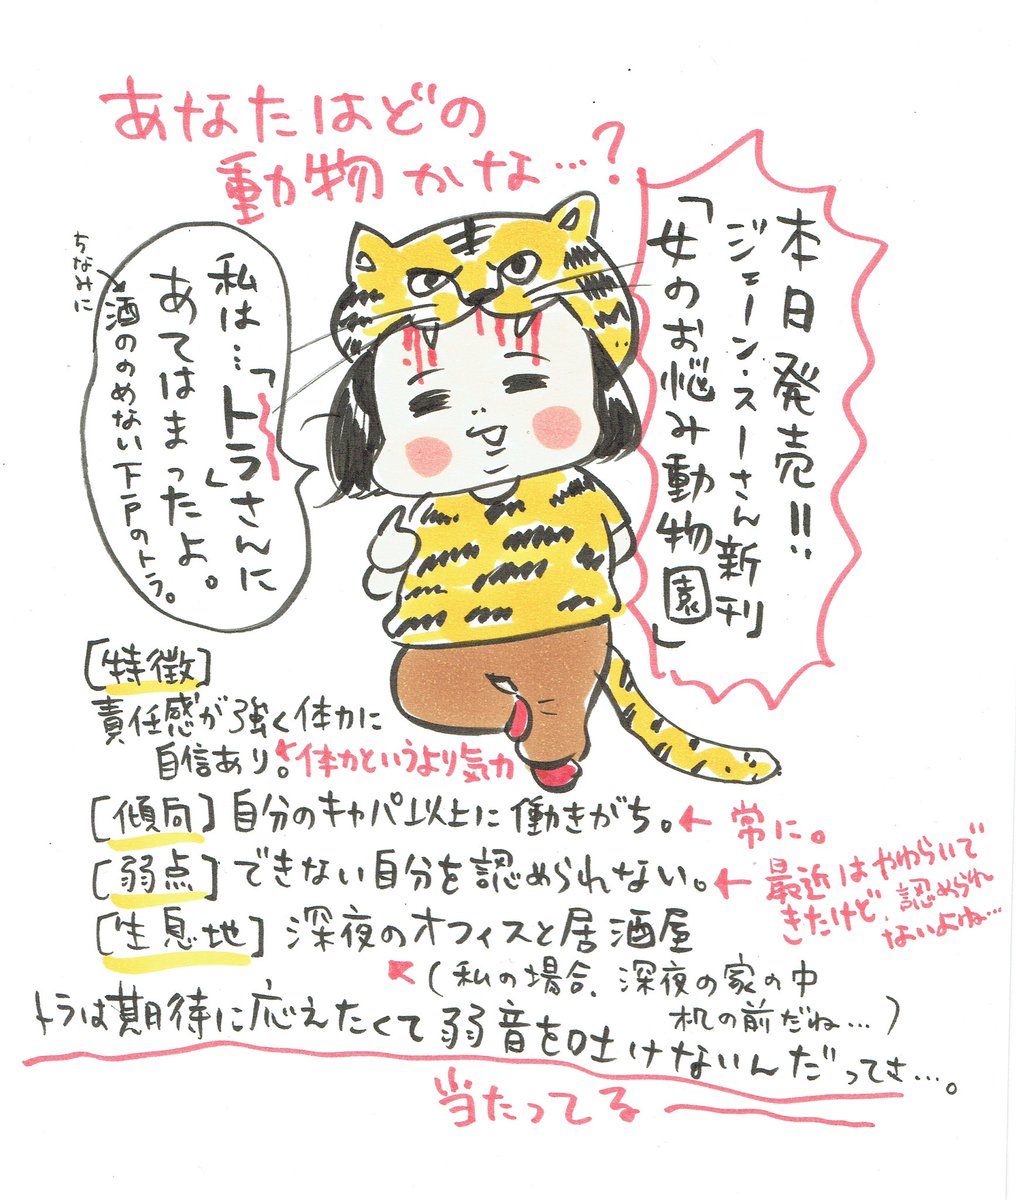 あなたはどの
動物かな…?
本日発売!!
ジェーン・スーさん新刊
「女のお悩み動物園」
私は…「トラ」さんに
あてはまったよ。
ちなみに
酒ののめない下戸のトラ。
[特徴]
責任感が強く体力に
自信あり。←体力というより気力
[傾向]自分のキャパ以上に働きがち。← 常に。
[弱点]できない自分を認められない。← 最近はやわらいで
きたけど、認められ
ないよね…
[生息地]深夜のオフィスと居酒屋
(私の場合、深夜の家の中
机の前だね…)
トラは期待に応えたくて弱音を吐けないんだってさ…。
当たってるー